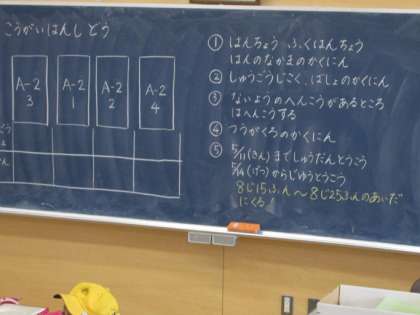 こうがいはんしどう
A-2
3
A-2
1
A-2
2
A-2
4
① はんちょう ふくはんちょう
はんのなかまのかくにん
② しゅうごうじこく、ばしょのかくにん
③ ないようのへんこうがあるところ
はへんこうする
④ つうがくろのかくにん
⑤ 5/11(きん)までしゅうだんとうこう
からじゆうとうこう
8じ15ふん〜8じ25ふんのあいだ
にくる